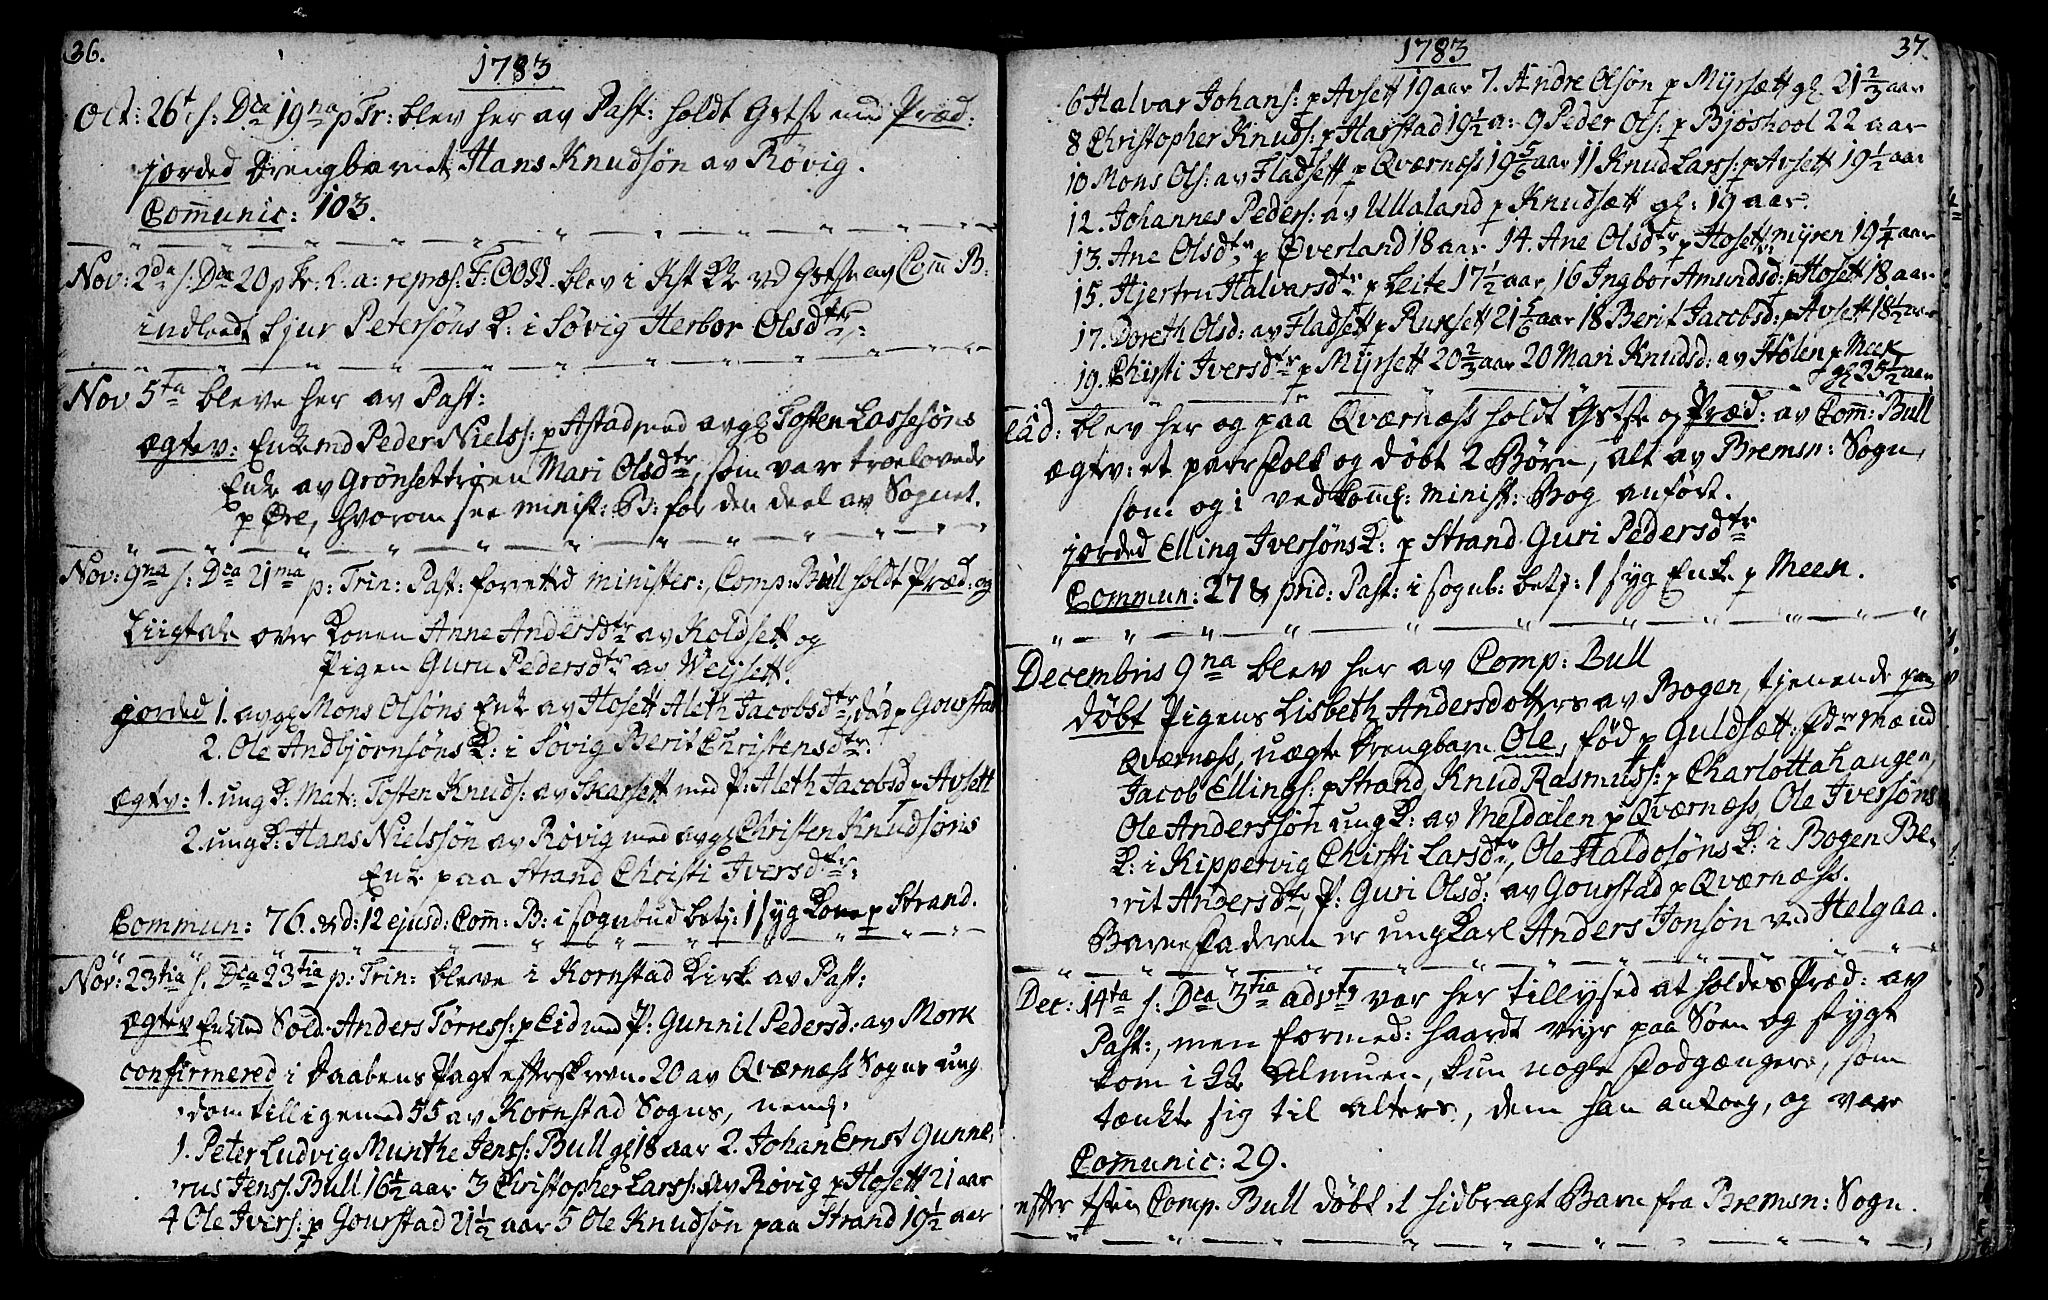 36.
1783
Oct: 26t s: Dca 19na p Tr: blev her av Past: holdt Gstst med Præd:
jorded Drengbarnet Hans Knudsøn av Røvig.
Com̄unic: 103.
Nov: 2da s: Dca 20 p Tr: l. a: repræs: F: COSS. blev i Kst Kk ved Gstste av Com̄: B:
indleed. Sjur Petersøns K: i Søvig Herbor Olsdtr:
Nov 5ta bleve her av Past:
ægtev: Enkemd Peder Niels: p Astad med avgl Tosten Lassesøns
Enke av Grønsettrøen Mari Olsdtr, som vare troelovede
p Øre, hvorom see minist: B: for den deel av Sognet.
Nov: 9na s: Dca 21ma p: Trin: Past: forretted minister:, Comp: Bull holdt Præd: og
Liigtale over Konen Anne Andersdtr av Koldsett og
Pigen Guru Pedersdtr av Wejsett.
jorded 1. avgl Mons Olsøns Enke av Hosett Aleth Jacobsdtr, død p Gourstad
2. Ole Andbjørnsøns K: i Søvig Berit Christensdtr:
ægtv: 1. ung K: Mat: Tosten Knuds: av Skarsett med P: Aleth Jacobsd p Avsett
2. ung K: Hans Nielssøn av Røvig med avgl Christen Knudsøns
Enke paa Strand Christi Iversdtr:
Commun: 76. & d: 12 ejusd: Com̄: B: i sognebud betj: 1 syg Kone p Strand.
Nov: 23tia s. Dca 23tia p: Trin: bleve i Kornstad Kirke av Past:
ægtev Enkmd Sold: Anders Tørress: p Eid med P: Gunnil Pedersd: av Mork
confirmered i Daabens Pagt efterskrevn. 20 av Qværnæss Sogns ung
dom tilligemed 55 av Kornstad Sogns, neml:
1. Peter Ludvig Munthe Jenss: Bull gl 18 aar 2. Johan Ernst Gunne,
rus Jenss: Bull 16½ aar 3 Christopher Larss: av Røvig p Hosett 21 aar
4 Ole Ivers: p Gourstad 21½ aar 5 Ole Knudsøn paa Strand 19½ aar
1783
37.
6 Halvar Johans: p Avsett 19 aar 7. Andre Olsøn p Myrsætt gl. 21⅔ aar
8 Christopher Knuds: p Harstad 19½ a: 9 Peder Ols: p Bjøshool 22 aar
10 Mons Ols: av Fladsett p Qværnæss 19⅚ aar 11 Knud Larss: p Avsett 19½ aar
12. Johannes Peders: av Ullaland p Knudsætt gl: 19 aar.
13. Ane Olsdtr p Øverland 18 aar 14. Ane Olsdtr, p Hosettmyren 19¼ aar
15. Hjertru Halvarsdtr p Leite 17½ aar 16 Ingbor Amundsd: p Hosett 18 aar
17. Doreth Olsd: av Fladsett p Ruxsett 21⅚ aar 18 Berit Jacobsd: p Avsett 18½ aar
19. Christi Iversdtr p Myrsett 20⅔ aar 20 Mari Knudsd: av Hølen p Meek
gl 25½ aar
Eâd: blev her og paa Qværnæss holdt Gstste og Præd: av Com̄: Bull
ægtv: et par Folk og døbt 2 Børn, alt av Bremsn: Sogn,
som og i vedkom̄l: minist: Bog anført.
jorded Elling Iversøns K: p Strand Guri Pedersdtr
Commun: 27 & prid: Past: i sognb: betj: 1 syg Enke p Meek.
Decembris 9na blev her av Comp: Bull
døbt Pigens Lisbeth Andersdotters av Bogen, tjenende paa
Qværnæss, uægte Drengbarn Ole, fød p Guldsætt: Fdr mænd
Jacob Ellings: p Strand, Knud Rasmuss: p Charlottahaugen,
Ole Anderssøn ung K: av Mesdalen p Qværnæss, Ole Iversøns
K: i Kippervig Chirsti Larsdtr, Ole Haldosøns K: i Bogen Be,
rit Andersdtr, P: Guri Olsd: av Gourstad p Qværnæss.
Barnefaderen er ung Karl Anders Jonsøn ved Helgaa.
Dec: 14ta s: Dca 3tia advts var her tillysed at holdes Præd: av
Past:, men formed: haardt Veyr paa Søen og stygt
kom i Kk Almuen, kun nogle Fodgængere, som
tænkte sig til Alters, dem han antog, og vare
Com̄unic: 29.
efter Tsten Comp: Bull døbt et hidbragt Barn fra Bremsn: Sogn.